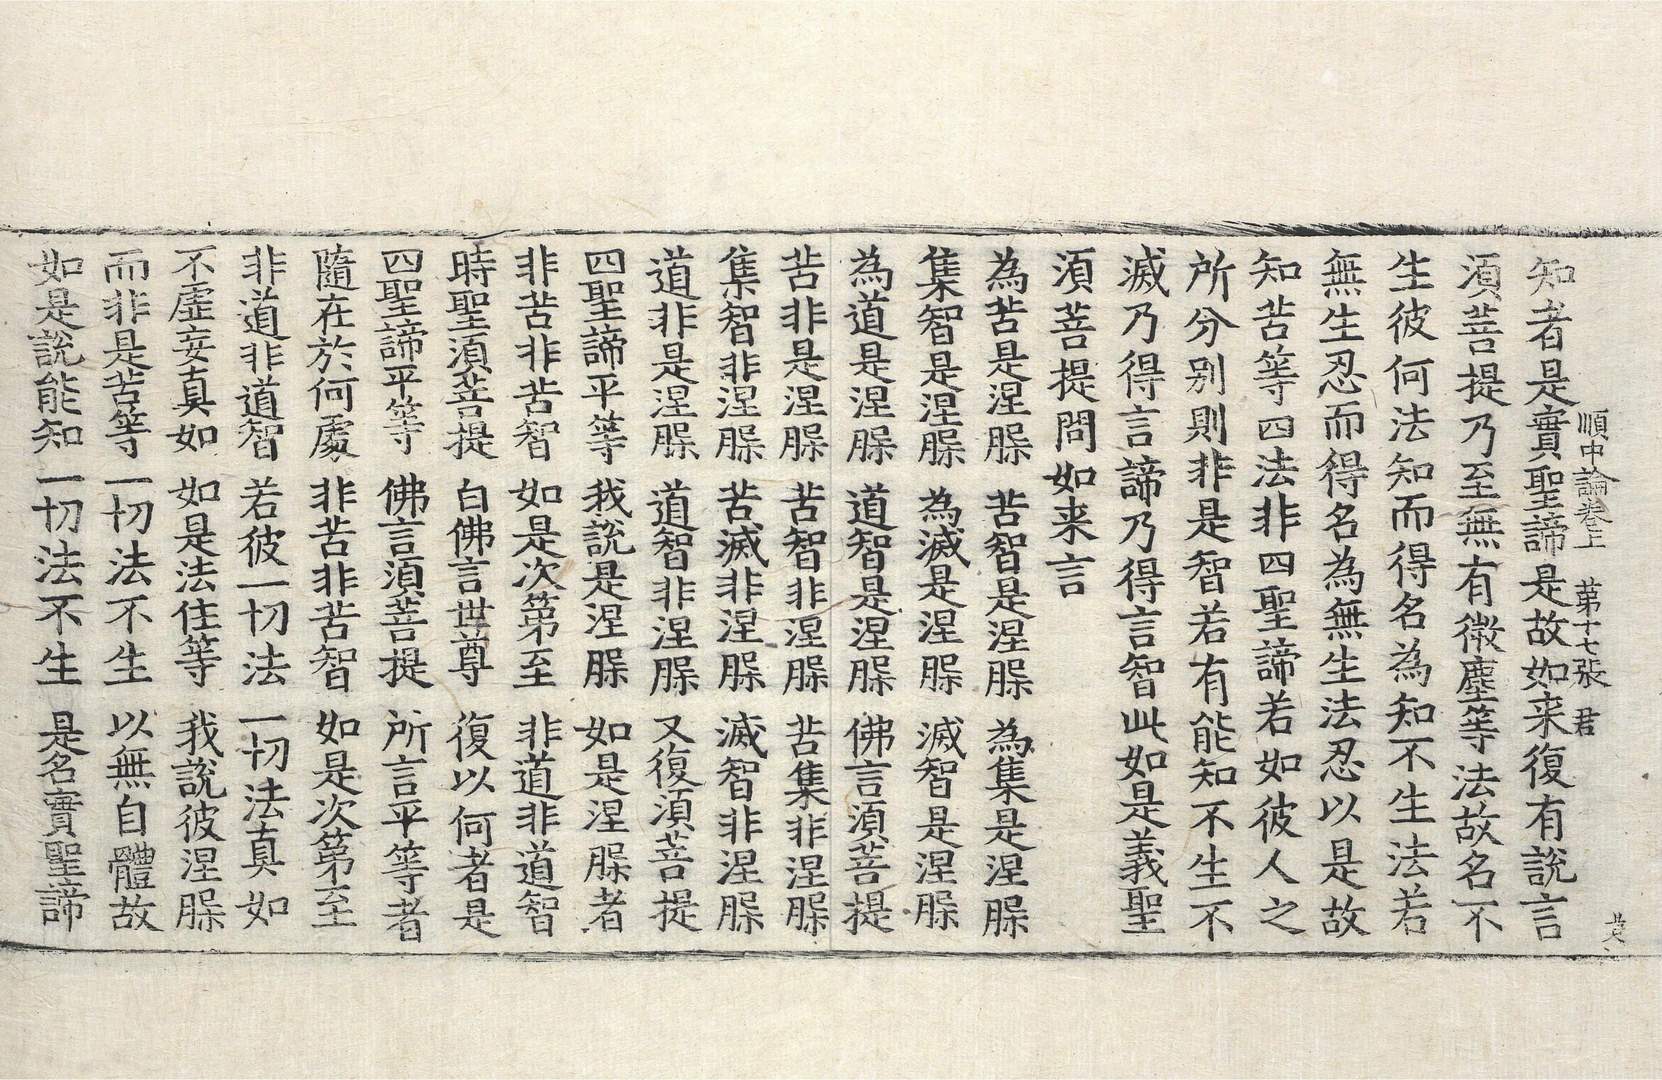 順中論卷上 第十七張 君
知者是實聖諦是故如来復有說言
湏菩提乃至無有微塵等法故名不
生彼何法知而得名為知不生法若
無生忍而得名為無生法忍以是故
知苦等四法非四聖諦若如彼人之
所分別則非是智若有能知不生不
滅乃得言諦乃得言智此如是義聖
湏菩提問如来言
為苦是涅槃 苦智是涅槃 為集是涅槃
集智是涅槃 為滅是涅槃 滅智是涅槃
為道是涅槃 道智是涅槃 佛言湏菩提
苦非是涅槃 苦智非涅槃 苦集非涅槃
集智非涅槃 苦滅非涅槃 滅智非涅槃
道非是涅槃 道智非涅槃 又復湏菩提
四聖諦平等 我說是涅槃 如是涅槃者
非苦非苦智 如是次第至 非道非道智
時聖湏菩提 白佛言世尊 復以何者是
四聖諦平等 佛言湏菩提 所言平等者
隨在於何處 非苦非苦智 如是次第至
非道非道智 若彼一切法 一切法真如
不虛妄真如 如是法住等 我說彼涅槃
而非是苦等 一切法不生 以無自體故
如是說能知 一切法不生 是名實聖諦